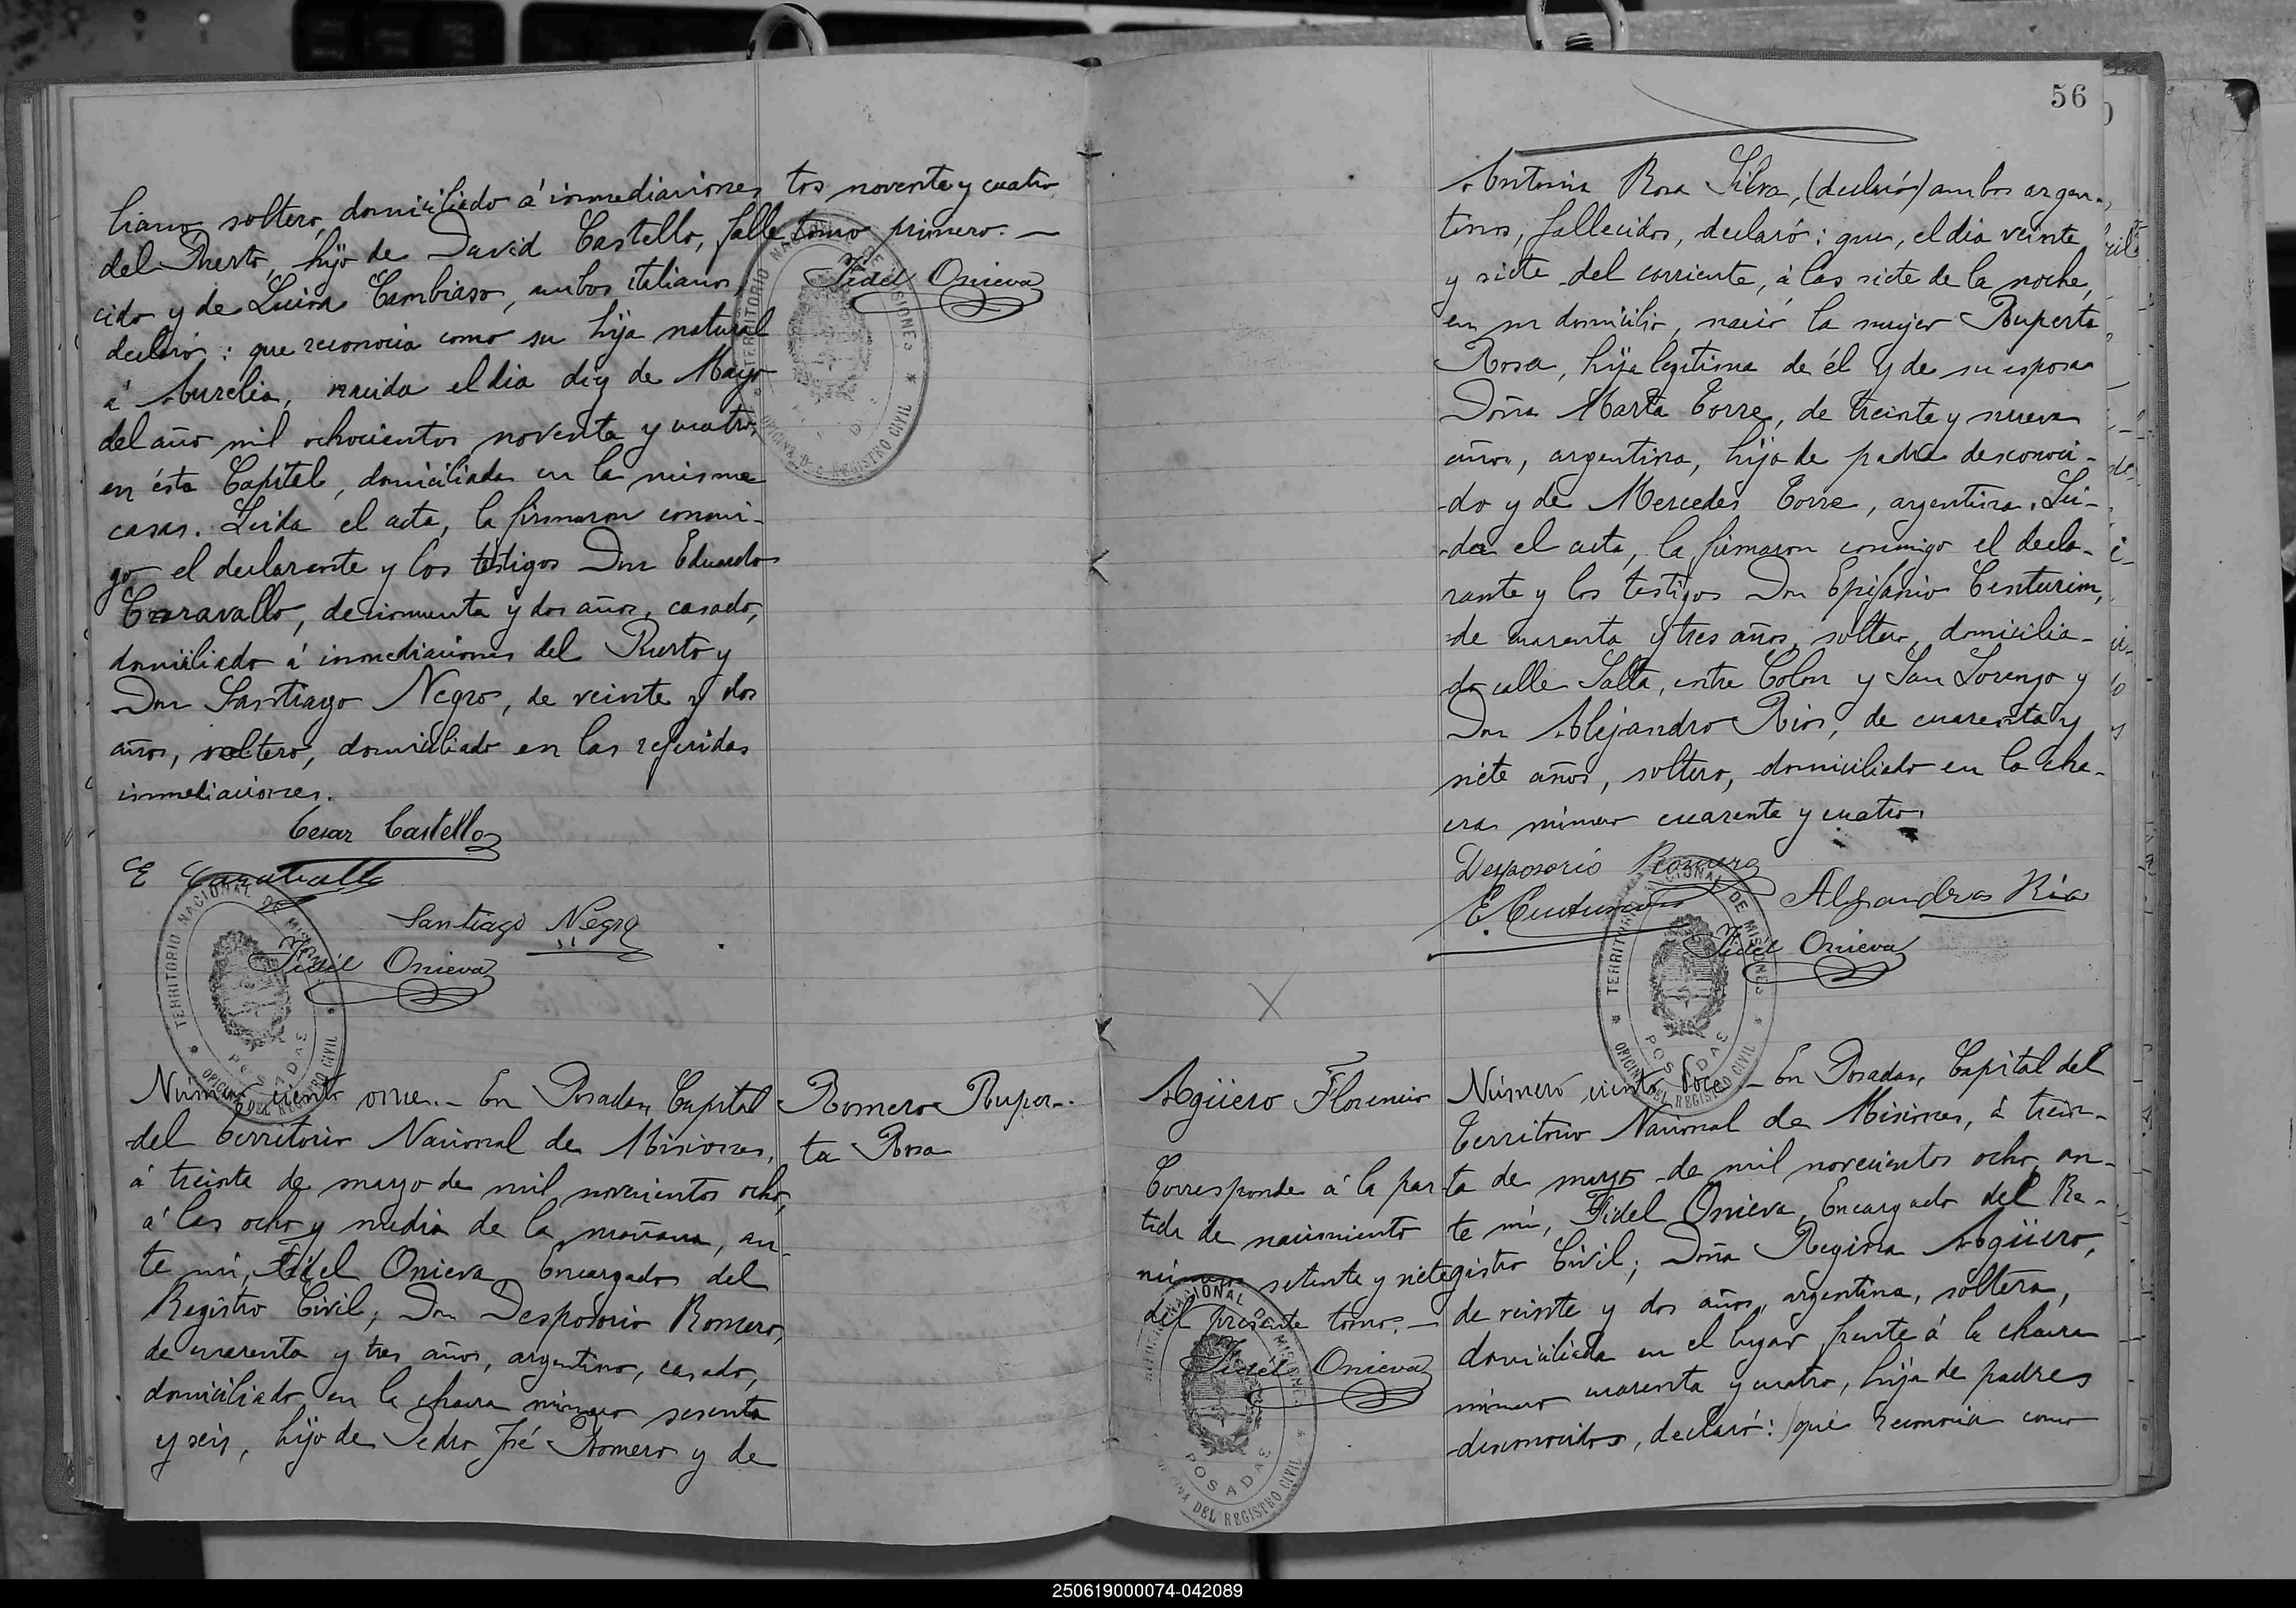 liano, soltero, domiciliado á inmediaciones
del Puerto, hijo de David Castello, falle
cido y de Luisa Cambiaso, ambos italianos,
declaró: que reconocia como su hija natural
á Aurelia, nacida el dia diez de Mayo
del año mil ochocientos noventa y cuatro,
en ésta Capital, domiciliada en la misma
casas. Leida el acta, la firmaron conmi-
go el declarante y los testigos Don Eduardo
Caravallo, de cincuenta y dos años, casado,
domiciliado á inmediaciones del Puerto y
Don Santiago Negro, de veinte y dos
años, soltero, domiciliado en las referidas
inmediaciones.
Cesar Castello
E Caravallo
Santiago Negro
Fidel Onieva
TERRITORIO NACIONAL DE MISIONES
POSADAS
OFICINA DEL REGISTRO CIVIL
tos noventa y cuatro
tomo primero. —
Fidel Onieva
TERRITORIO NACIONAL DE MISIONES
OFICINA DEL REGISTRO CIVIL
Número ciento once.- En Posadas, Capital
del Territorio Nacional de Misiones,
á treinta de marzo de mil novecientos ocho,
á las ocho y media de la mañana, an-
te mi, Fidel Onieva, Encargado del
Registro Civil; Don Desposorio Romero,
de cuarenta y tres años, argentino, casado,
domiciliado en la chacra número sesenta
y seis, hijo de Pedro José Romero y de
Romero Ruper-
ta Rosa
56
Antonia Rosa Silva, (declaró) ambos argen-
tinos, fallecidos, declaró: que, el dia veinte
y siete del corriente, á las siete de la noche,
en su domicilio, nació la mujer Ruperta
Rosa, hija legitima de él y de su esposa
Doña Marta Torre, de treinta y nueve
años, argentina, hija de padre desconoci-
do y de Mercedes Torre, argentina. Lei-
da el acta, la firmaron conmigo el decla-
rante y los testigos Don Epifanio Centurion,
de cuarenta y tres años, soltero, domicilia-
do calle Salta, entre Colon y San Lorenzo y
Don Alejandro Rios, de cuarenta y
siete años, soltero, domiciliado en la cha-
cra número cuarenta y cuatro.
Desposorio Romero
E. Centurion
Alejandro Rio
Fidel Onieva
TERRITORIO NACIONAL DE MISIONES
POSADAS
OFICINA DEL REGISTRO CIVIL
X
Agüero Florencio
Corresponde á la par
tida de nacimiento
número setenta y siete
del presente tomo. —
Fidel Onieva
NACIONAL DE MISIONES
POSADAS
OFICINA DEL REGISTRO CIVIL
Número ciento doce.- En Posadas, Capital del
Territorio Nacional de Misiones, á trein-
ta de marzo de mil novecientos ocho, an-
te mi, Fidel Onieva, Encargado del Re-
gistro Civil; Doña Regina Agüero,
de veinte y dos años, argentina, soltera,
domiciliada en el lugar frente á la chacra
número cuarenta y cuatro, hija de padres
desconocidos, declaró: que reconocia como
250619000074-042089